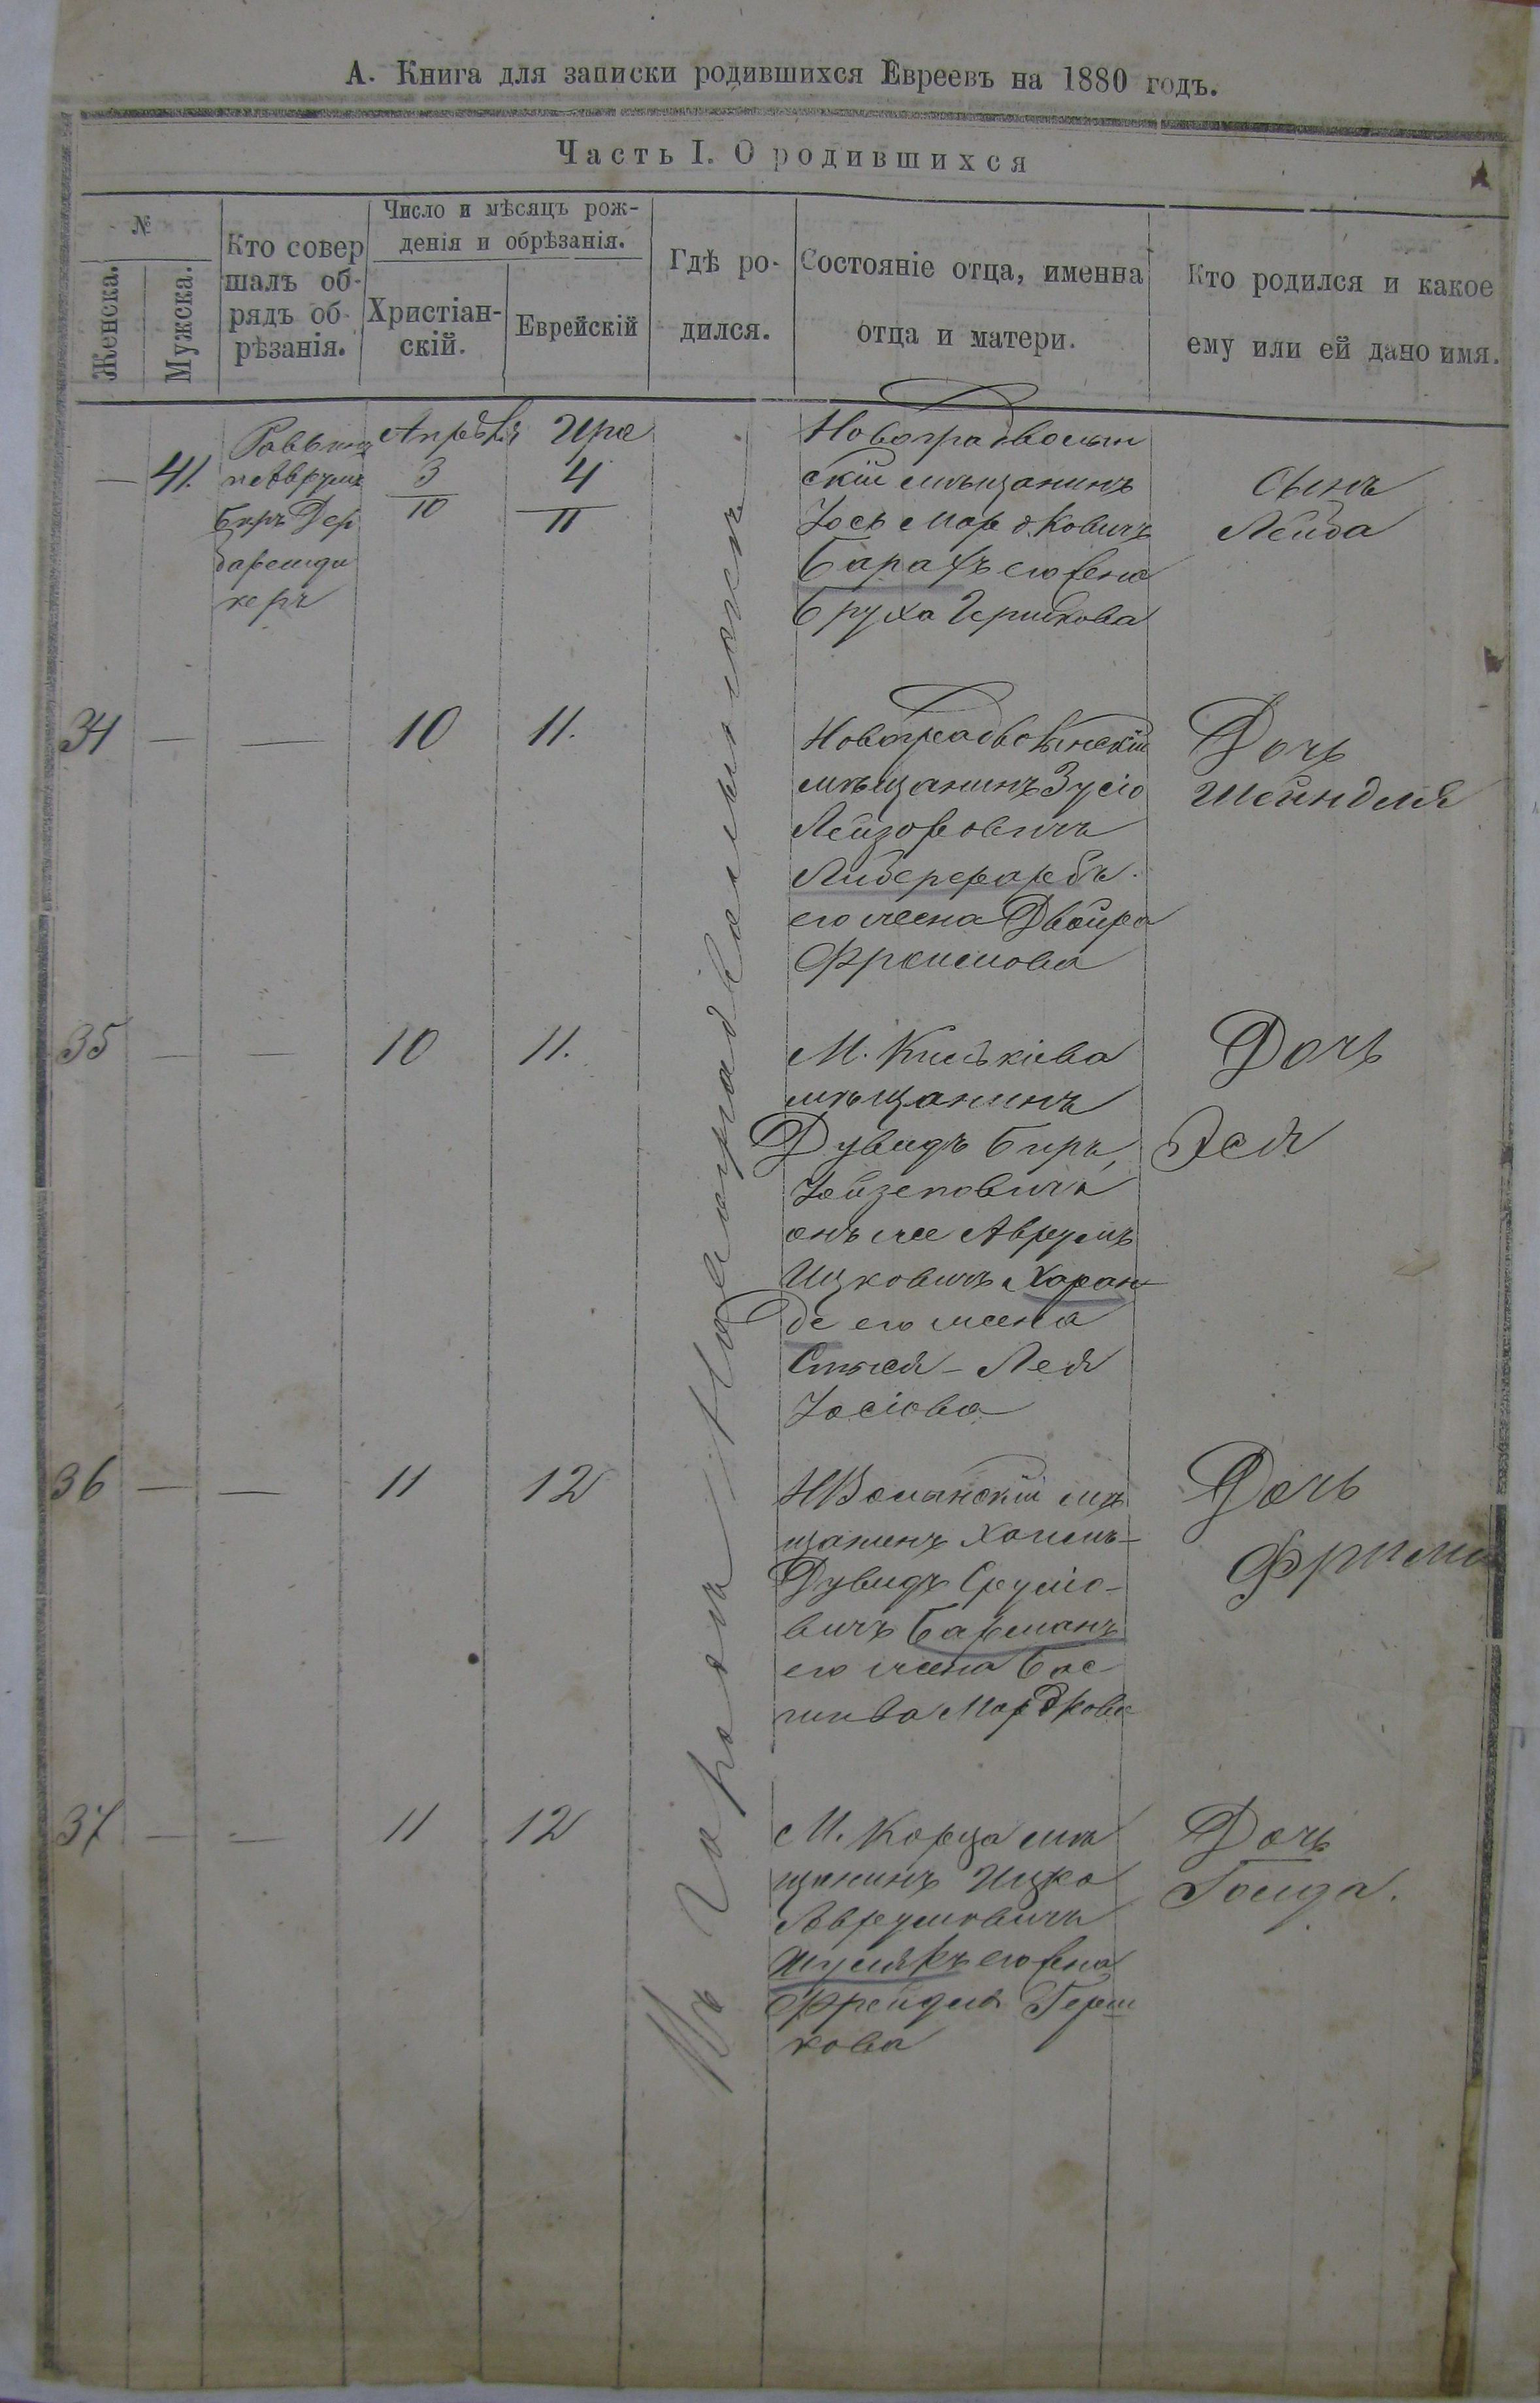 А. Книга для записки родившихся Евреевъ на 1880 годъ.
Часть I. О родившихся
№
Женска.
Мужска.
Кто совер
шалъ об-
рядъ об-
рѣзанія.
Число и мѣсяцъ рож-
денія и обрѣзанія.
Христіан-
скій.
Еврейскій
Гдѣ ро-
дился.
Состояніе отца, именна
отца и матери.
Кто родился и какое
ему или ей дано имя.
— 41.
Аврумъ
Беръ
Апрѣля
3
10
Ира
4
11
Въ городѣ Новоградволынскѣ
Новоградволын
скій мѣщанинъ
Іось Мордковичъ
Барахъ его жена
Бруха Гершкова
сынъ
Лейба
34 — — 10 11.
Новоградволынскій
мѣщанинъ Зусь
Лейзоровичъ
Либерфарбъ
его жена Двойра
Фроимова
Дочь
Шейндля
35 — — 10 11.
М.
мѣщанинъ
Дувидъ Беръ
онъ же Аврумъ
Ицковичъ Харан-
де его жена
Лея
Іосіова
Дочь
Эся
36 — — 11 12
НВолынскій мѣ
щанинъ Хаимъ-
Дувидъ Сруліо-
вичъ Барманъ
его жена Бас-
шива Мордкова
Дочь
Фрима
37 — — 11 12
М. Корца мѣ
щанинъ Ицко
Аврумовичъ
Шулякъ его жена
Фрейдля Герш
кова
Дочь
Голда.